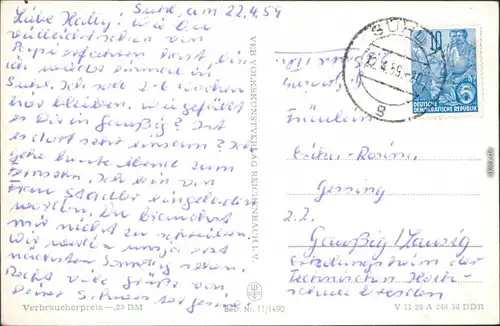 Suhl, am 22.4.59
Liebe Hally! Wie Du
vielleicht schon von
erfahren hast, bin
ich wieder einmal in
Suhl. Ich soll 2-3 Wochen
hier bleiben. Wie gefällt
es Dir in Gaußig? Ist
es dort sehr einsam? Ich
gehe heute Abend zum
Fernsehn. Ich bin von
Frau Stadler eingeladen
worden. Du brauchst
mir nicht zu schreiben.
Wir werden uns ja erst
nächsten Sonntag sehen.
Recht viele Grüße von
Deiner Schwester
Verbraucherpreis —,20 DM
VEB VOLKSKUNSTVERLAG REICHENBACH I. V.
Best. Nr. 11/1490
SUHL
22.4.59
g
10
DEUTSCHE
DEMOKRATISCHE REPUBLIK
Fräulein
Gessing
z. Z.
Gaußig/Lausitz
Erholungsheim der
Technischen Hoch-
schule Dresden
V 11 28 A 246 58 DDR